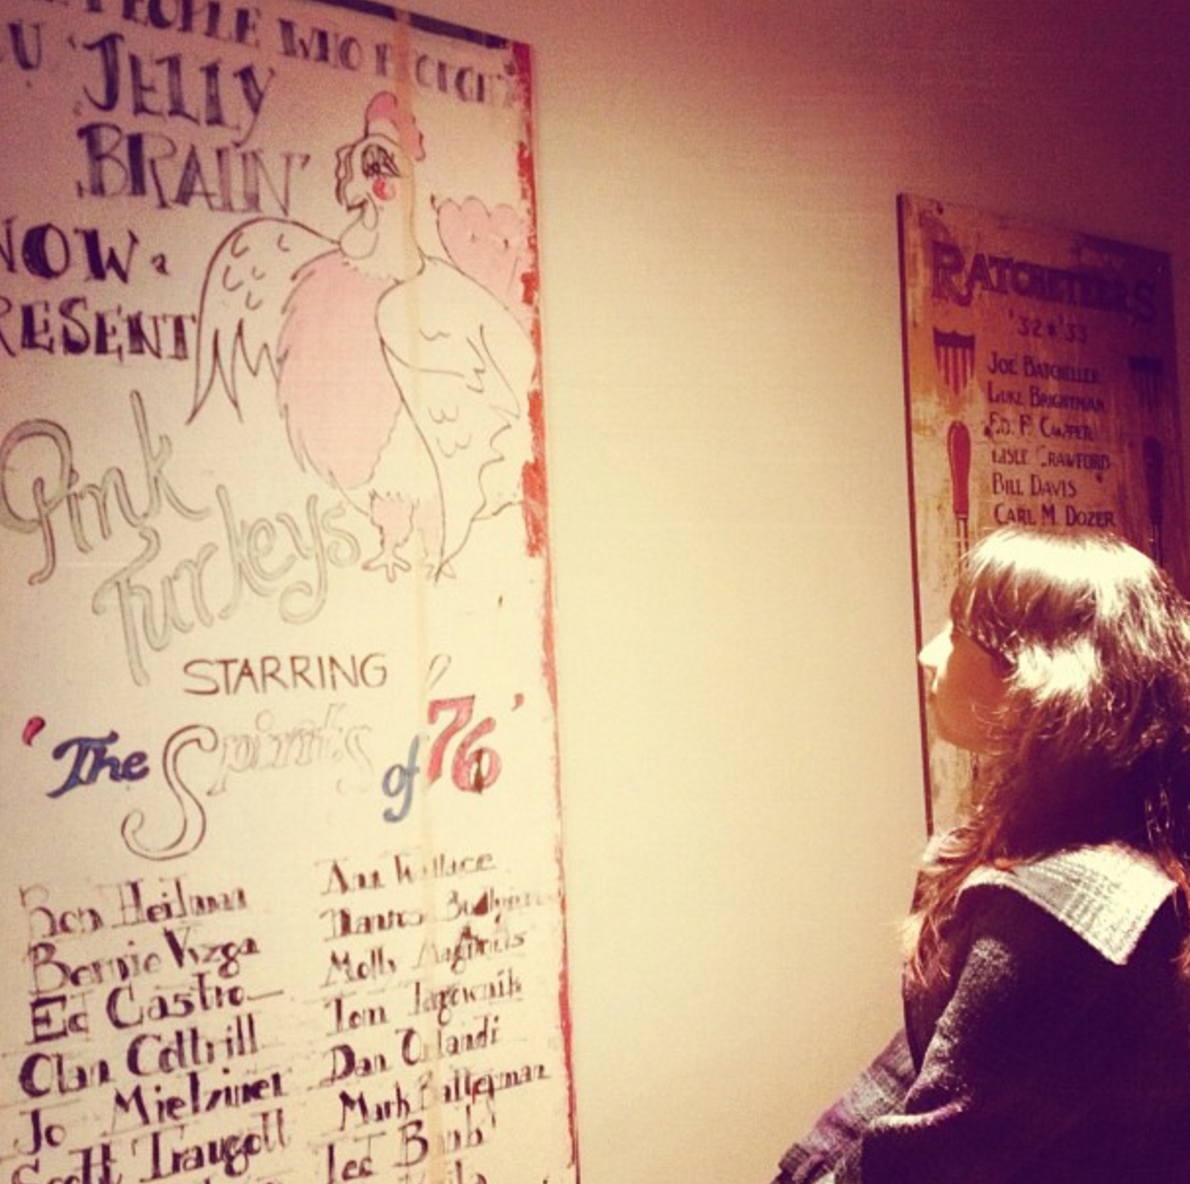 PEOPLE WHO
'JELLY
BRAIN'
Pink
Turkeys
STARRING
'The Spirits of 76'
Ron Heilman
Bernie Vizga
Ed Castro
Cottrill
Jo Mielziner
Scott Traugott
Ann Wallace
Molly
Tom Jagownik
Dan Orlandi
Mark Batterman
RATCHETEERS
'32 * '33
JOE BATCHELLER
LUKE BRIGHTMAN
ED. F. CUPPER
LISLE CRAWFORD
BILL DAVIS
CARL M. DOZER